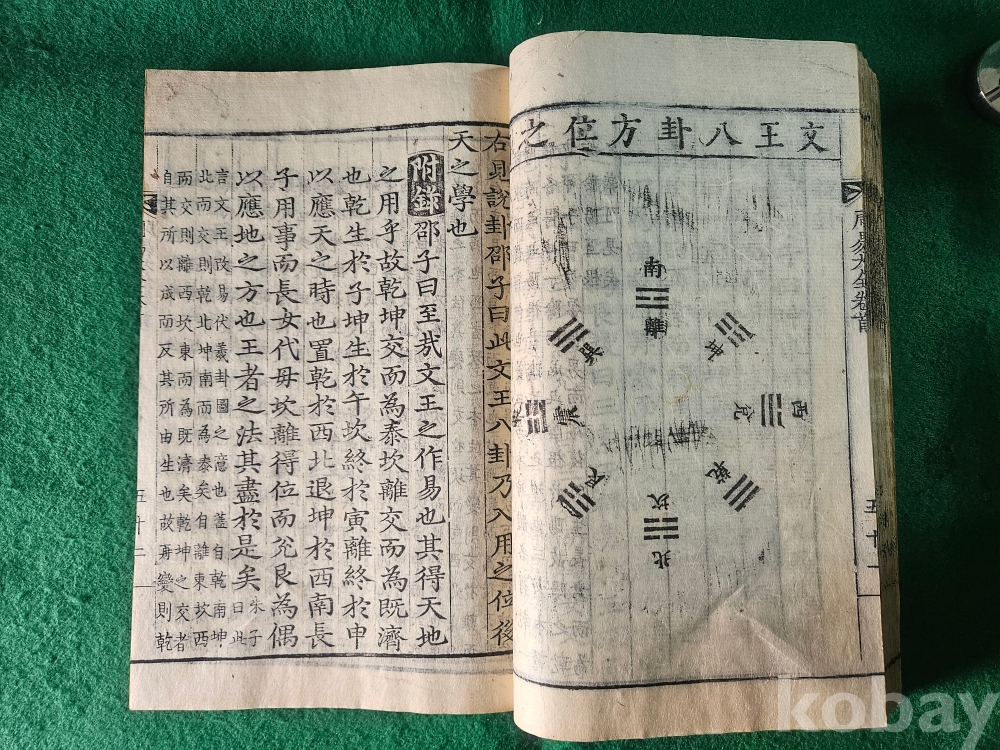 文王八卦方位之
南
離
坤
西
兌
乾
坎
北
艮
震
巽
周易大全卷首
五十一
右見說卦邵子曰此文王八卦乃入用之位後
天之學也
附錄邵子曰至哉文王之作易也其得天地
之用乎故乾坤交而為泰坎離交而為既濟
也乾生於子坤生於午坎終於寅離終於申
以應天之時也置乾於西北退坤於西南長
子用事而長女代母坎離得位而兌艮為偶
以應地之方也王者之法其盡於是矣朱子曰此
言文王改易伏羲卦圖之意也蓋自乾南坤
北而交則乾北坤南而為泰矣自離東坎西
而交則離西坎東而為既濟矣乾坤之交者
自其所以成而反其所由生也故再變則乾
五十二
kobay